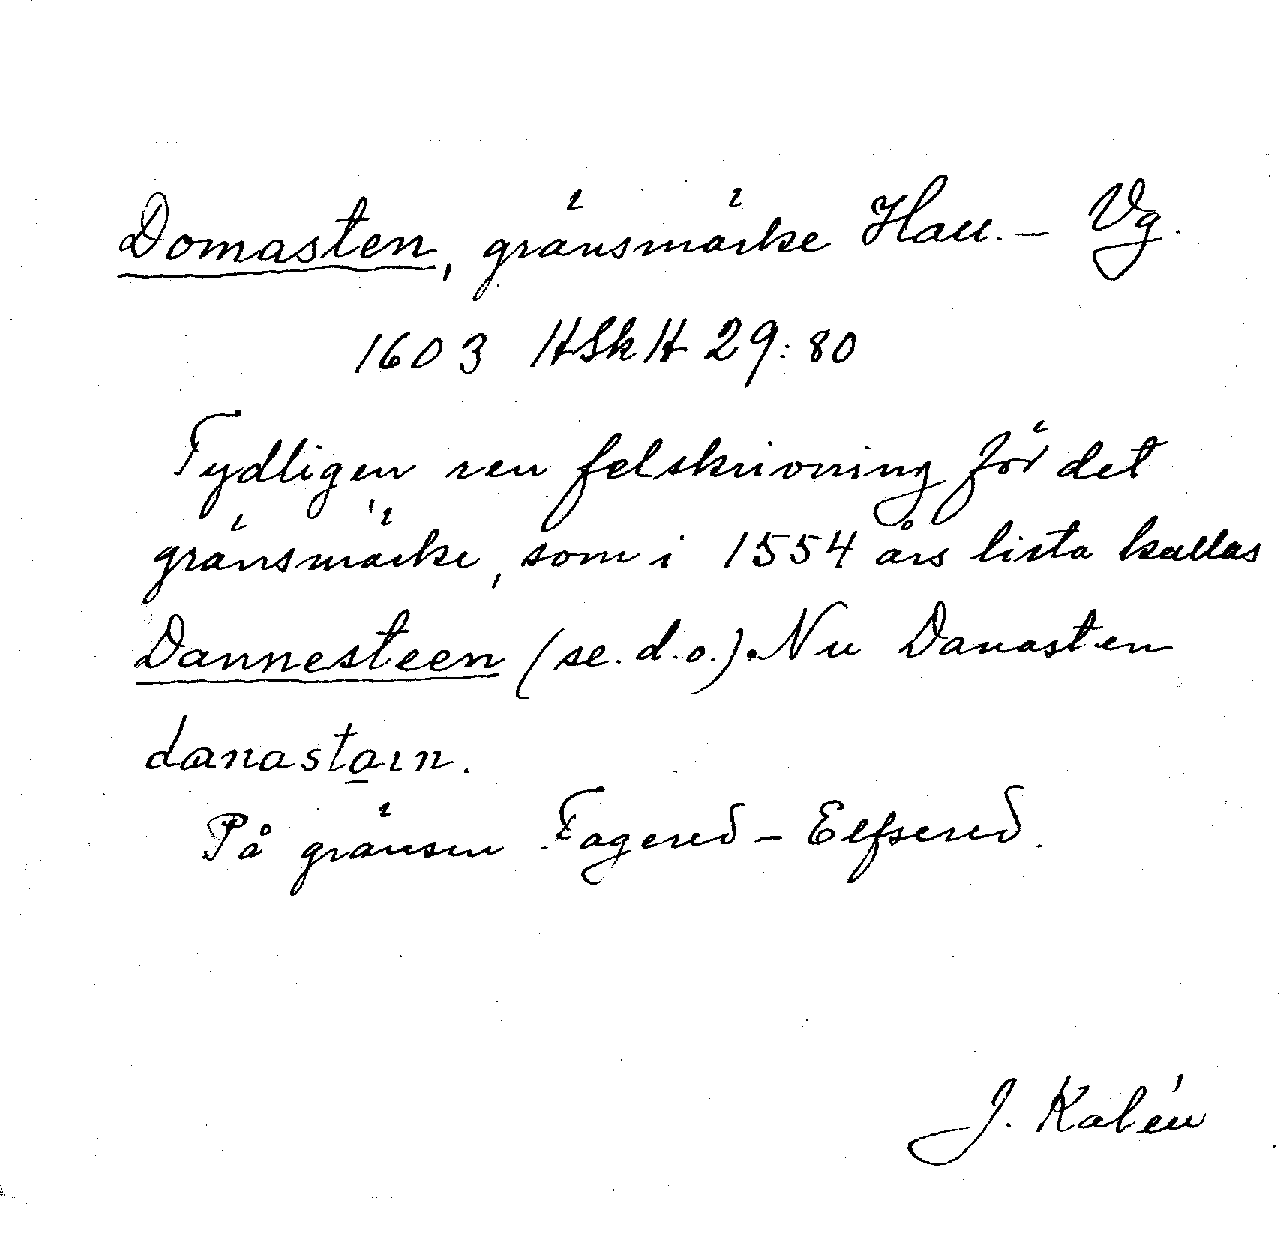 Domasten, gränsmärke Hall. – Vg.
1603 HSkH 29:80
Tydligen ren felskrivning för det
gränsmärke, som i 1554 års lista kallas
Dannesteen (se. d.o.). Nu Danasten
danastaın.
På gränsen Fagered – Elfsered.
J. Kalén